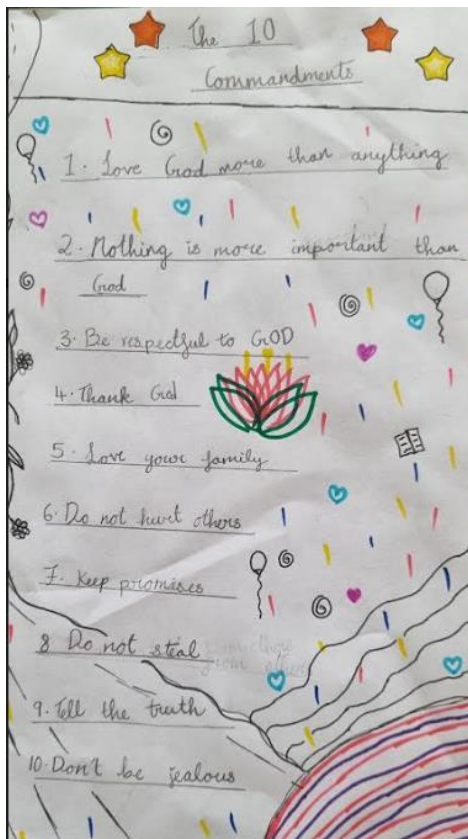 The 10
Commandments
1. Love God more than anything
2. Nothing is more important than
God
3. Be respectful to GOD
4. Thank God
5. Love your family
6. Do not hurt others
7. Keep promises
8 Do not steal
from others
9. Tell the truth
10. Don't be jealous